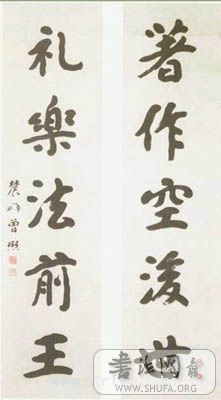 著作空後世
礼樂法前王
農髯曾熙
書法網
WWW.SHUFA.ORG